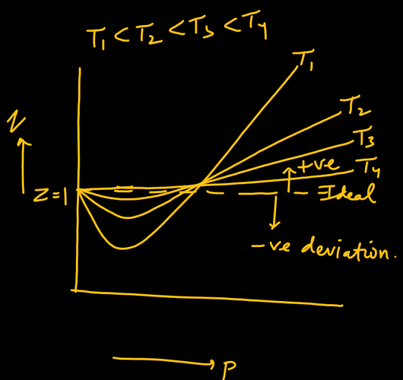 T₁ < T₂ < T₃ < T₄
T₁
T₂
T₃
+ve
T₄
Z
Z=1
Ideal
-ve deviation.
P